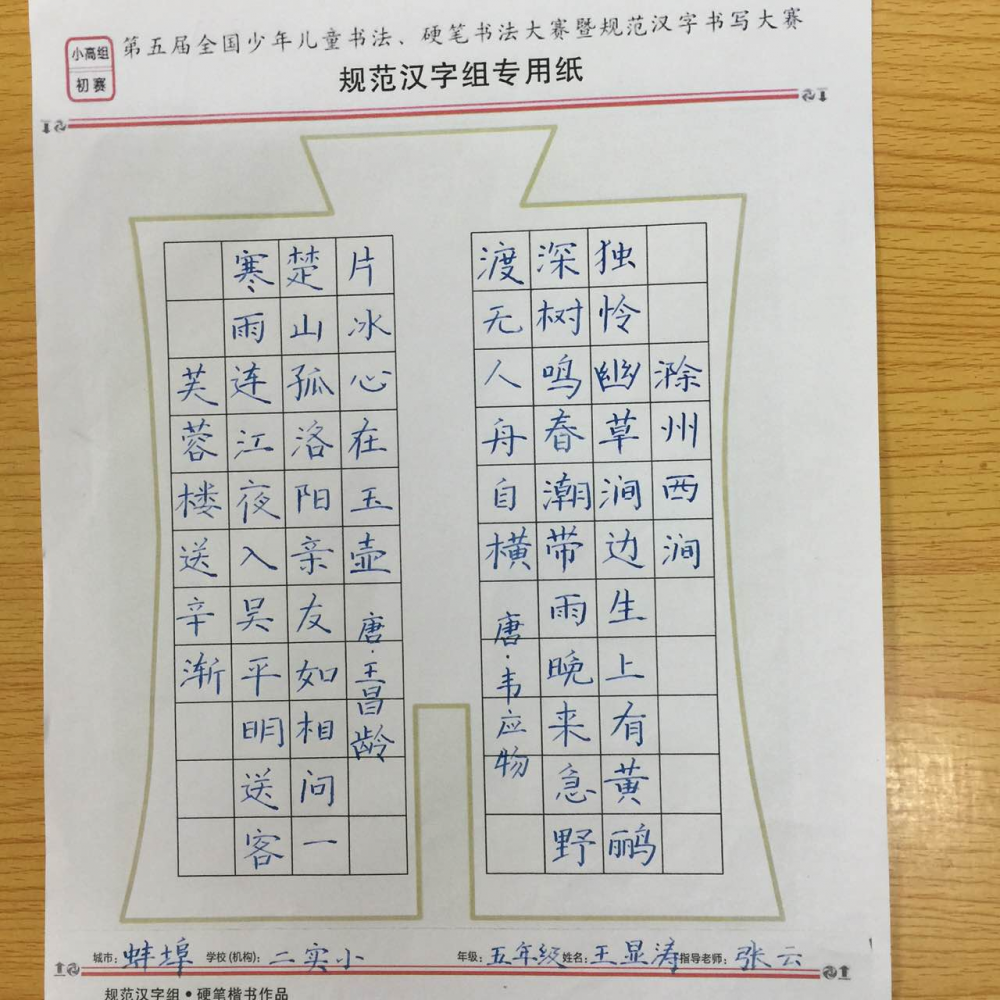 小高组
初赛
第五届全国少年儿童书法、硬笔书法大赛暨规范汉字书写大赛
规范汉字组专用纸
滁州西涧
独怜幽草涧边生上有黄鹂
深树鸣春潮带雨晚来急野
渡无人舟自横唐·韦应物
芙蓉楼送辛渐
寒雨连江夜入吴平明送客
楚山孤洛阳亲友如相问一
片冰心在玉壶唐·王昌龄
城市：蚌埠 学校(机构)：二实小 年级：五年级 姓名：王显涛 指导老师：张云
规范汉字组·硬笔楷书作品